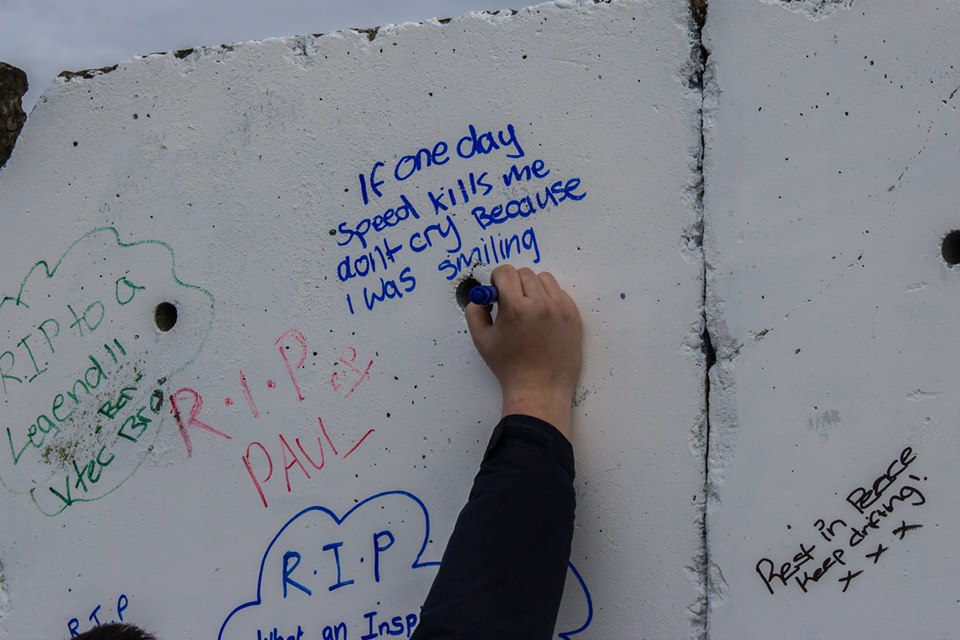 If one day
speed kills me
don't cry Because
I was smiling
RIP to a
Legend!!
- Ben
Vtec Bro
R.I.P
PAUL
R.I.P
What an Insp
R.I.P
Rest in Peace
Keep drifting!
x x x